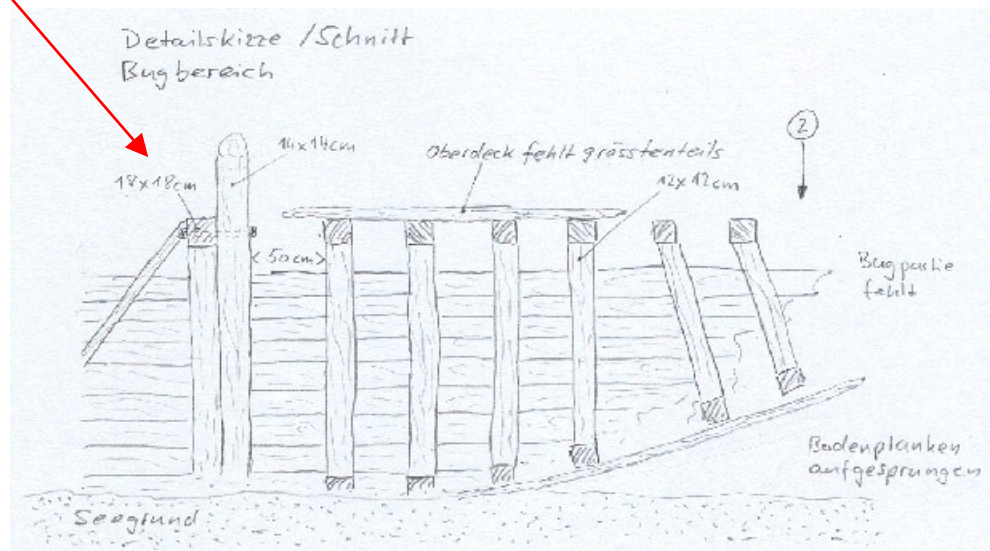 Detailskizze / Schnitt
Bugbereich
2
14x14cm
Oberdeck fehlt grösstenteils
18x18cm
12x12cm
< 50cm >
Bugpartie
fehlt
Bodenplanken
aufgesprungen
Seegrund